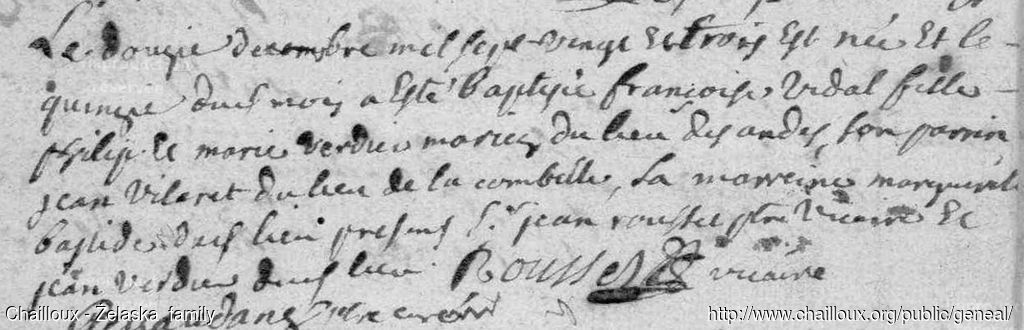 Le dougie decembre mil sept vingt et trois est née et le
quinze dud mois a esté baptisée françoise vidal fille
philip et marie verdier mariez du lieu des andes, son parrin
jean vilaret du lieu de la combelle, sa marreine marguerite
bastide dud lieu presens Sr jean rousset ptre vicaire et
jean verdier dud lieu Rousset vicaire
ptre curé
Chailloux - Żelaska family
http://www.chailloux.org/public/geneal/